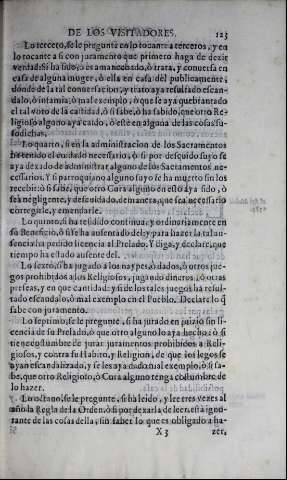 DE LOS VISITADORES. 123
Lo tercero, se le pregunta en lo tocante a terceros, y en
lo tocante a si con juramento que primero haga de dezir
verdad: Si ha sido, ò es amancebado, ò trata, y conversa en
casa de alguna muger, ò ella en casa del publicamente,
dónde de la tal conversacion, y trato aya resultado escan-
dalo, ò infamia, ò mal exemplo, ò que se aya quebrantado
el tal voto de la castidad, ò si sabe, ò ha sabido, que otro Re-
ligioso alguno aya caido, ò estè en alguna de las cosas su-
sodichas.
Lo quarto, si en la administracion de los Sacramentos
ha tenido el cuidado necessario, ò si por descuido suyo se
aya dexado de administrar alguno de los Sacramentos ne-
cessarios. Y si parroquiano alguno suyo se ha muerto sin los
recebir: ò si sabe, que otro Cura alguno en esto aya sido, ò
sea negligente, y descuidado, de manera, que sea necessario
corregirle, y enmendarle.
Lo quinto, si ha residido continua, y ordinariamente en
su Beneficio, ò si se ha ausentado del: y para hazer la tal au-
sencia ha pedido licencia al Prelado. Y diga, y declare, que
tiempo ha estado ausente del.
Lo sexto, si ha jugado a los naypes, ò dados, ò otros jue-
gos prohibidos a los Religiosos, jugando dineros, ò otras
preseas, y en que cantidad: y si de los tales juegos ha resul-
tado escandalo, ò mal exemplo en el Pueblo. Declare lo q̃
sabe con juramento.
Lo septimo, se le pregunte, si ha jurado en juizio sin li-
cencia de su Prelado, ò que otro alguno lo aya hecho: ò si
tiene costumbre de jurar juramentos prohibidos a Reli-
giosos, y contra su Habito, y Religion, de que los legos se
ayan escandalizado, y se les aya dado mal exemplo, ò si sa-
be, que otro Religioso, ò Cura alguno tenga costumbre de
lo hazer.
Lo octavo, se le pregunte, si ha leido, y lee tres vezes al
año la Regla de la Orden, ò si por dexarla de leer, està igno-
rante de las cosas della, sin saber lo que es obligado a ha-
X 3 zer,